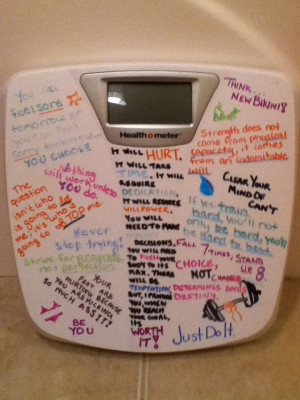 You can
feel sore
tomorrow or
you can feel
sorry tomorrow...
YOU CHOOSE
THINK...
NEW BIKINIS
Health o meter
Strength does not
come from physical
capacity, it comes
from an indomitable
will
Nothing
will work unless
YOU DO.
The
question
isn't who
is going to let
me; it's who is
going to STOP me
Never
stop trying!
Strive for progress,
not perfection
YOUR
FEET ARE
HURTING BECAUSE
YOU ARE KICKING
SO MUCH ASS!!!
BE
YOU
IT WILL HURT.
IT WILL TAKE
TIME. IT WILL
REQUIRE
DEDICATION.
IT WILL REQUIRE
WILLPOWER.
YOU WILL
NEED TO MAKE
DECISIONS.
YOU WILL NEED
TO PUSH YOUR
BODY TO ITS
MAX. THERE
WILL BE
TEMPTATION.
BUT, I PROMISE
YOU, WHEN
YOU REACH
YOUR GOAL,
ITS
WORTH
IT!
CLEAR YOUR
MIND OF
CAN'T
If you train
hard, you'll not
only be hard, you'll
be hard to beat.
FALL 7 TIMES, STAND
UP 8
CHOICE,
NOT CHANCE,
DETERMINES
DESTINY.
Just Do It.